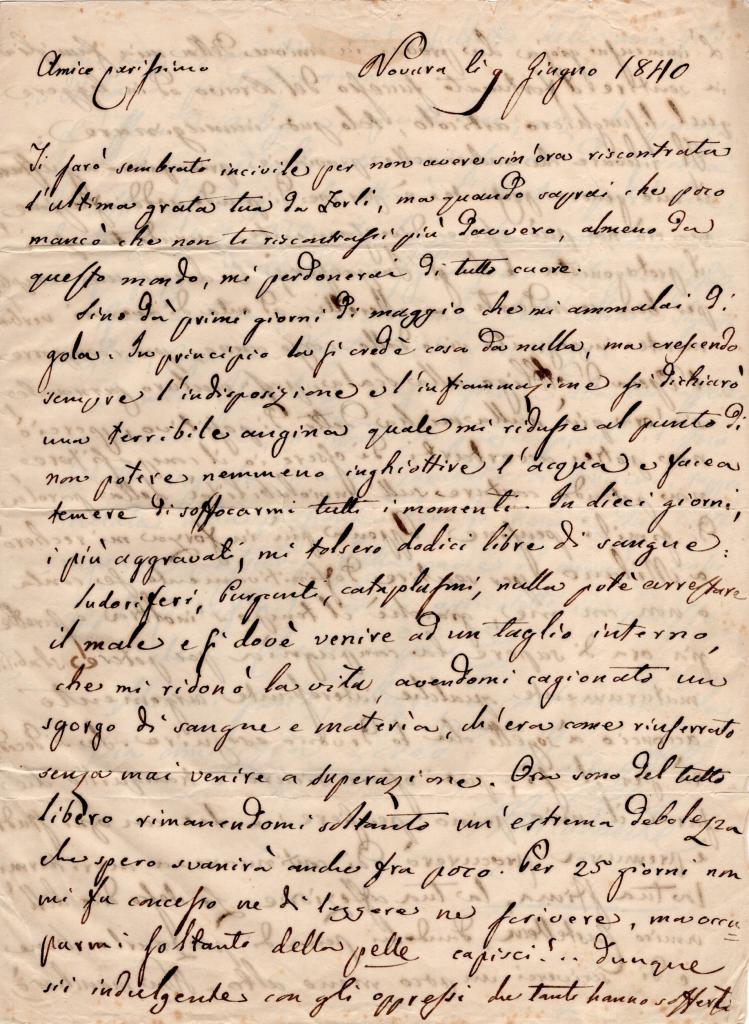 Amico carissimo Novara li 9 Giugno 1840
Ti sarò sembrato incivile per non avere sin'ora riscontrata
l'ultima grata tua da Forlì, ma quando saprai che poco
mancò che non ti riscontrassi più davvero, almeno da
questo mondo, mi perdonerai di tutto cuore.
Sino da' primi giorni di maggio che mi ammalai di
gola. In principio la si credè cosa da nulla, ma crescendo
sempre l'indisposizione e l'infiammazione si dichiarò
una terribile angina quale mi ridusse al punto di
non potere nemmeno inghiottire l'acqua e facea
temere di soffocarmi tutti i momenti. In dieci giorni,
i più aggravati, mi tolsero dodici libre di sangue:
Sudoriferi, Purganti, cataplasmi, nulla potè arrestare
il male e si dovè venire ad un taglio interno,
che mi ridonò la vita, avendomi cagionato un
sgorgo di sangue e materia, ch'era come rinserrato
senza mai venire a superazione. Ora sono del tutto
libero rimanendomi soltanto un'estrema debolezza
che spero svanirà anche fra poco. Per 25 giorni non
mi fu concesso ne di leggere ne scrivere, ma occu=
parmi soltanto della pelle capisci!.. Dunque
sii indulgente con gli oppressi che tanto hanno sofferto